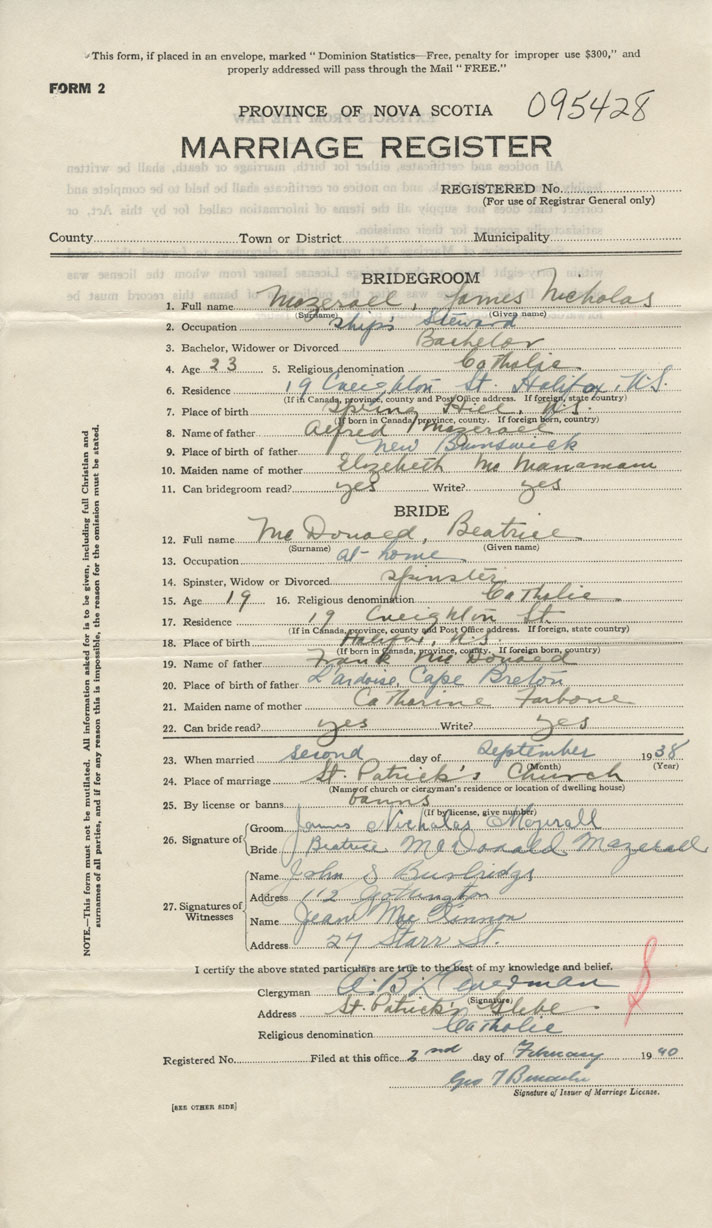 This form, if placed in an envelope, marked "Dominion Statistics—Free, penalty for improper use $300," and
properly addressed will pass through the Mail "FREE."
FORM 2
PROVINCE OF NOVA SCOTIA 095428
MARRIAGE REGISTER
REGISTERED No.
(For use of Registrar General only)
County Town or District Municipality
BRIDEGROOM
1. Full name Mazerall, James Nicholas
(Surname) (Given name)
2. Occupation Ship's Steward
3. Bachelor, Widower or Divorced Bachelor
4. Age 23 5. Religious denomination Catholic
6. Residence 19 Creighton St. Halifax, N.S.
(If in Canada, province, county and Post Office address. If foreign, state country)
7. Place of birth Spring Hill, N.S.
(If born in Canada, province, county. If foreign born, country)
8. Name of father Alfred Mazerall
9. Place of birth of father New Brunswick
10. Maiden name of mother Elizabeth
11. Can bridegroom read? yes Write? yes
BRIDE
12. Full name McDonald, Beatrice
(Surname) (Given name)
13. Occupation at home
14. Spinster, Widow or Divorced spinster
15. Age 19 16. Religious denomination Catholic
17. Residence 19 Creighton St.
(If in Canada, province, county and Post Office address. If foreign, state country)
18. Place of birth Halifax, N.S.
(If born in Canada, province, county. If foreign born, country)
19. Name of father Frank McDonald
20. Place of birth of father L'ardoise, Cape Breton
21. Maiden name of mother Catharine
22. Can bride read? yes Write? yes
23. When married second day of September 1938
(Month) (Year)
24. Place of marriage St. Patrick's Church
(Name of church or clergyman's residence or location of dwelling house)
25. By license or banns banns
(If by license, give number)
26. Signature of
Groom James Nicholas
Bride Beatrice McDonald Mazerall
27. Signatures of Witnesses
Name John
Address 112
Name Jean MacKinnon
Address 27 Starr St.
I certify the above stated particulars are true to the best of my knowledge and belief.
Clergyman
(Signature)
Address St. Patrick's Glebe
Religious denomination Catholic
Registered No. Filed at this office 2nd day of February 1940
Geo
Signature of Issuer of Marriage License.
[SEE OTHER SIDE]
NOTE.—This form must not be mutilated. All information asked for is to be given, including full Christian and
surnames of all parties, and if for any reason this is impossible, the reason for the omission must be stated.